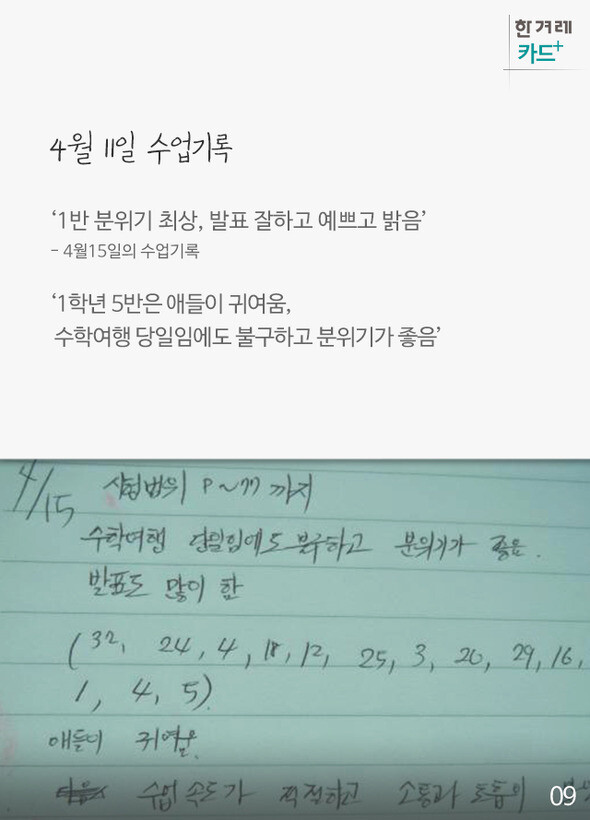 한겨레
카드+
4월 11일 수업기록
‘1반 분위기 최상, 발표 잘하고 예쁘고 밝음’
- 4월15일의 수업기록
‘1학년 5반은 애들이 귀여움,
수학여행 당일임에도 불구하고 분위기가 좋음’
4/15 실험법의 P~77 까지
수학여행 당일임에도 불구하고 분위기가 좋음.
발표도 많이 함
(32, 24, 4, 18, 12, 25, 3, 20, 29, 16,
1, 4, 5).
애들이 귀여움.
수업 속도가 적절하고 소통과 호흡의
09